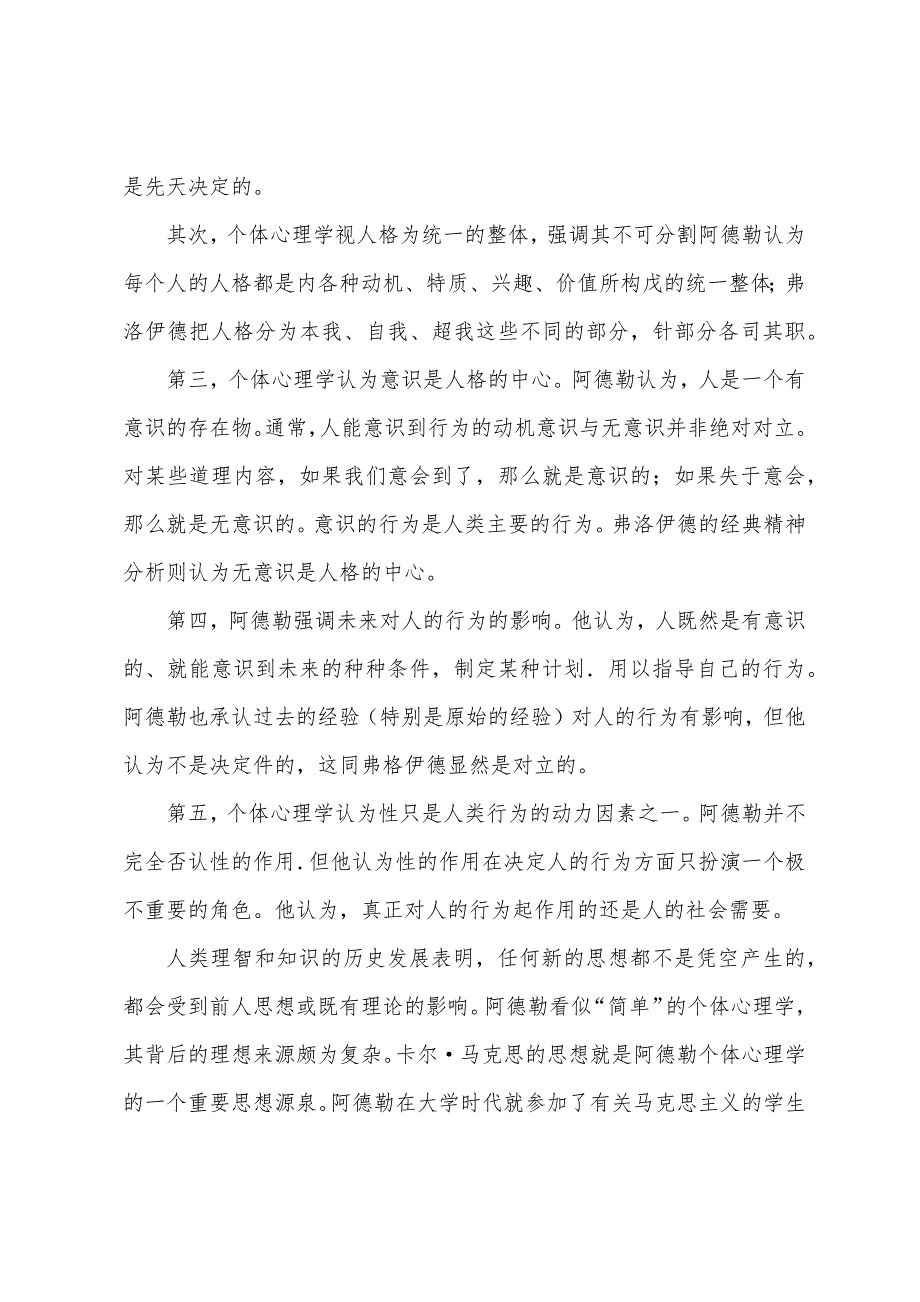 是先天决定的。
其次，个体心理学视人格为统一的整体，强调其不可分割阿德勒认为
每个人的人格都是内各种动机、特质、兴趣、价值所构戊的统一整体；弗
洛伊德把人格分为本我、自我、超我这些不同的部分，针部分各司其职。
第三，个体心理学认为意识是人格的中心。阿德勒认为，人是一个有
意识的存在物。通常，人能意识到行为的动机意识与无意识并非绝对对立。
对某些道理内容，如果我们意会到了，那么就是意识的；如果失于意会，
那么就是无意识的。意识的行为是人类主要的行为。弗洛伊德的经典精神
分析则认为无意识是人格的中心。
第四，阿德勒强调未来对人的行为的影响。他认为，人既然是有意识
的、就能意识到未来的种种条件，制定某种计划．用以指导自己的行为。
阿德勒也承认过去的经验（特别是原始的经验）对人的行为有影响，但他
认为不是决定件的，这同弗格伊德显然是对立的。
第五，个体心理学认为性只是人类行为的动力因素之一。阿德勒并不
完全否认性的作用．但他认为性的作用在决定人的行为方面只扮演一个极
不重要的角色。他认为，真正对人的行为起作用的还是人的社会需要。
人类理智和知识的历史发展表明，任何新的思想都不是凭空产生的，
都会受到前人思想或既有理论的影响。阿德勒看似“简单”的个体心理学，
其背后的理想来源颇为复杂。卡尔·马克思的思想就是阿德勒个体心理学
的一个重要思想源泉。阿德勒在大学时代就参加了有关马克思主义的学生